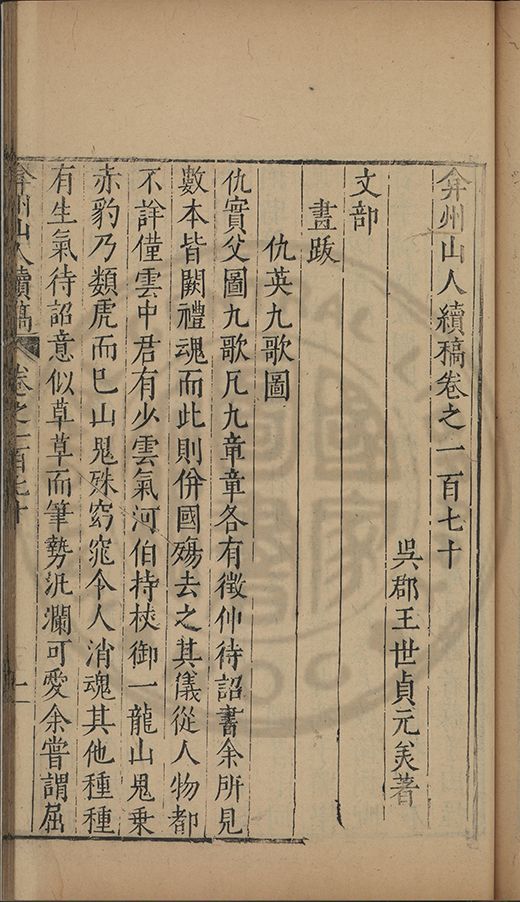 弇州山人續稿卷之一百七十
吳郡王世貞元美著
文部
畫跋
仇英九歌圖
仇實父圖九歌凡九章章各有徵仲待詔書余所見
數本皆闕禮魂而此則併國殤去之其儀從人物都
不詳僅雲中君有少雲氣河伯持梜御一龍山鬼乗
赤豹乃類虎而巳山鬼殊窈窕令人消魂其他種種
有生氣待詔意似草草而筆勢汎瀾可愛余嘗謂屈
弇州山人續稿 卷之一百七十 一